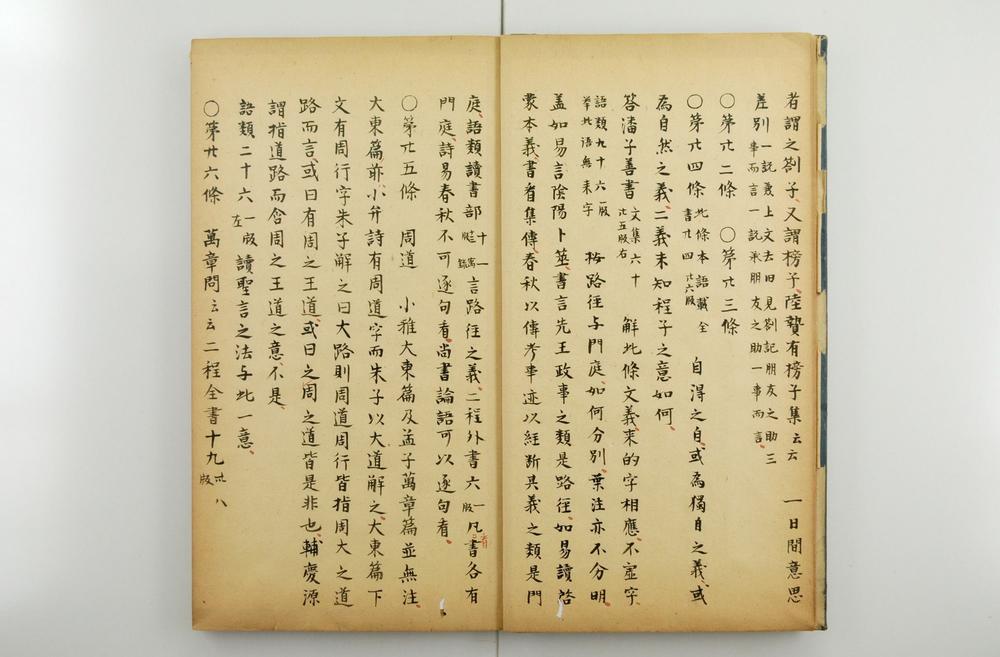 者謂之劄子又謂榜子陸贄有榜子集云云 一日間意思
差別一說裏上文去旧見劄記朋友之助三事而言一說承朋友之助一事而言
〇第廿二條 〇第廿三條
〇第廿四條此條本語載全書廿四廿六版 自得之自或為獨自之義或
為自然之義二義未知程子之意如何
答潘子善書文集六十廿五版右 解此條文義来的字相應不虛字
語類九十六一版挙此語無来字 按路徑与門庭如何分別葉注亦不分明
盖如易言陰陽卜筮書言先王政事之類是路徑如易讀啓
蒙本義書看集傳春秋以傳考事迹以経断其義之類是門
庭語類讀書部十一 言路徑之義二程外書六一版凡書各有
門庭詩易春秋不可逐句看尚書論語可以逐句看
〇第廿五條 周道 小雅大東篇及孟子萬章篇並無注
大東篇前小弁詩有周道字而朱子以大道解之大東篇下
文有周行字朱子解之曰大路則周道周行皆指周大之道
路而言或曰有周之王道或曰之周之道皆是非也輔慶源
謂指道路而含周之王道之意不是
語類二十六一版左讀聖言之法与此一意
〇第廿六條 萬章問云云二程全書十九廿八版